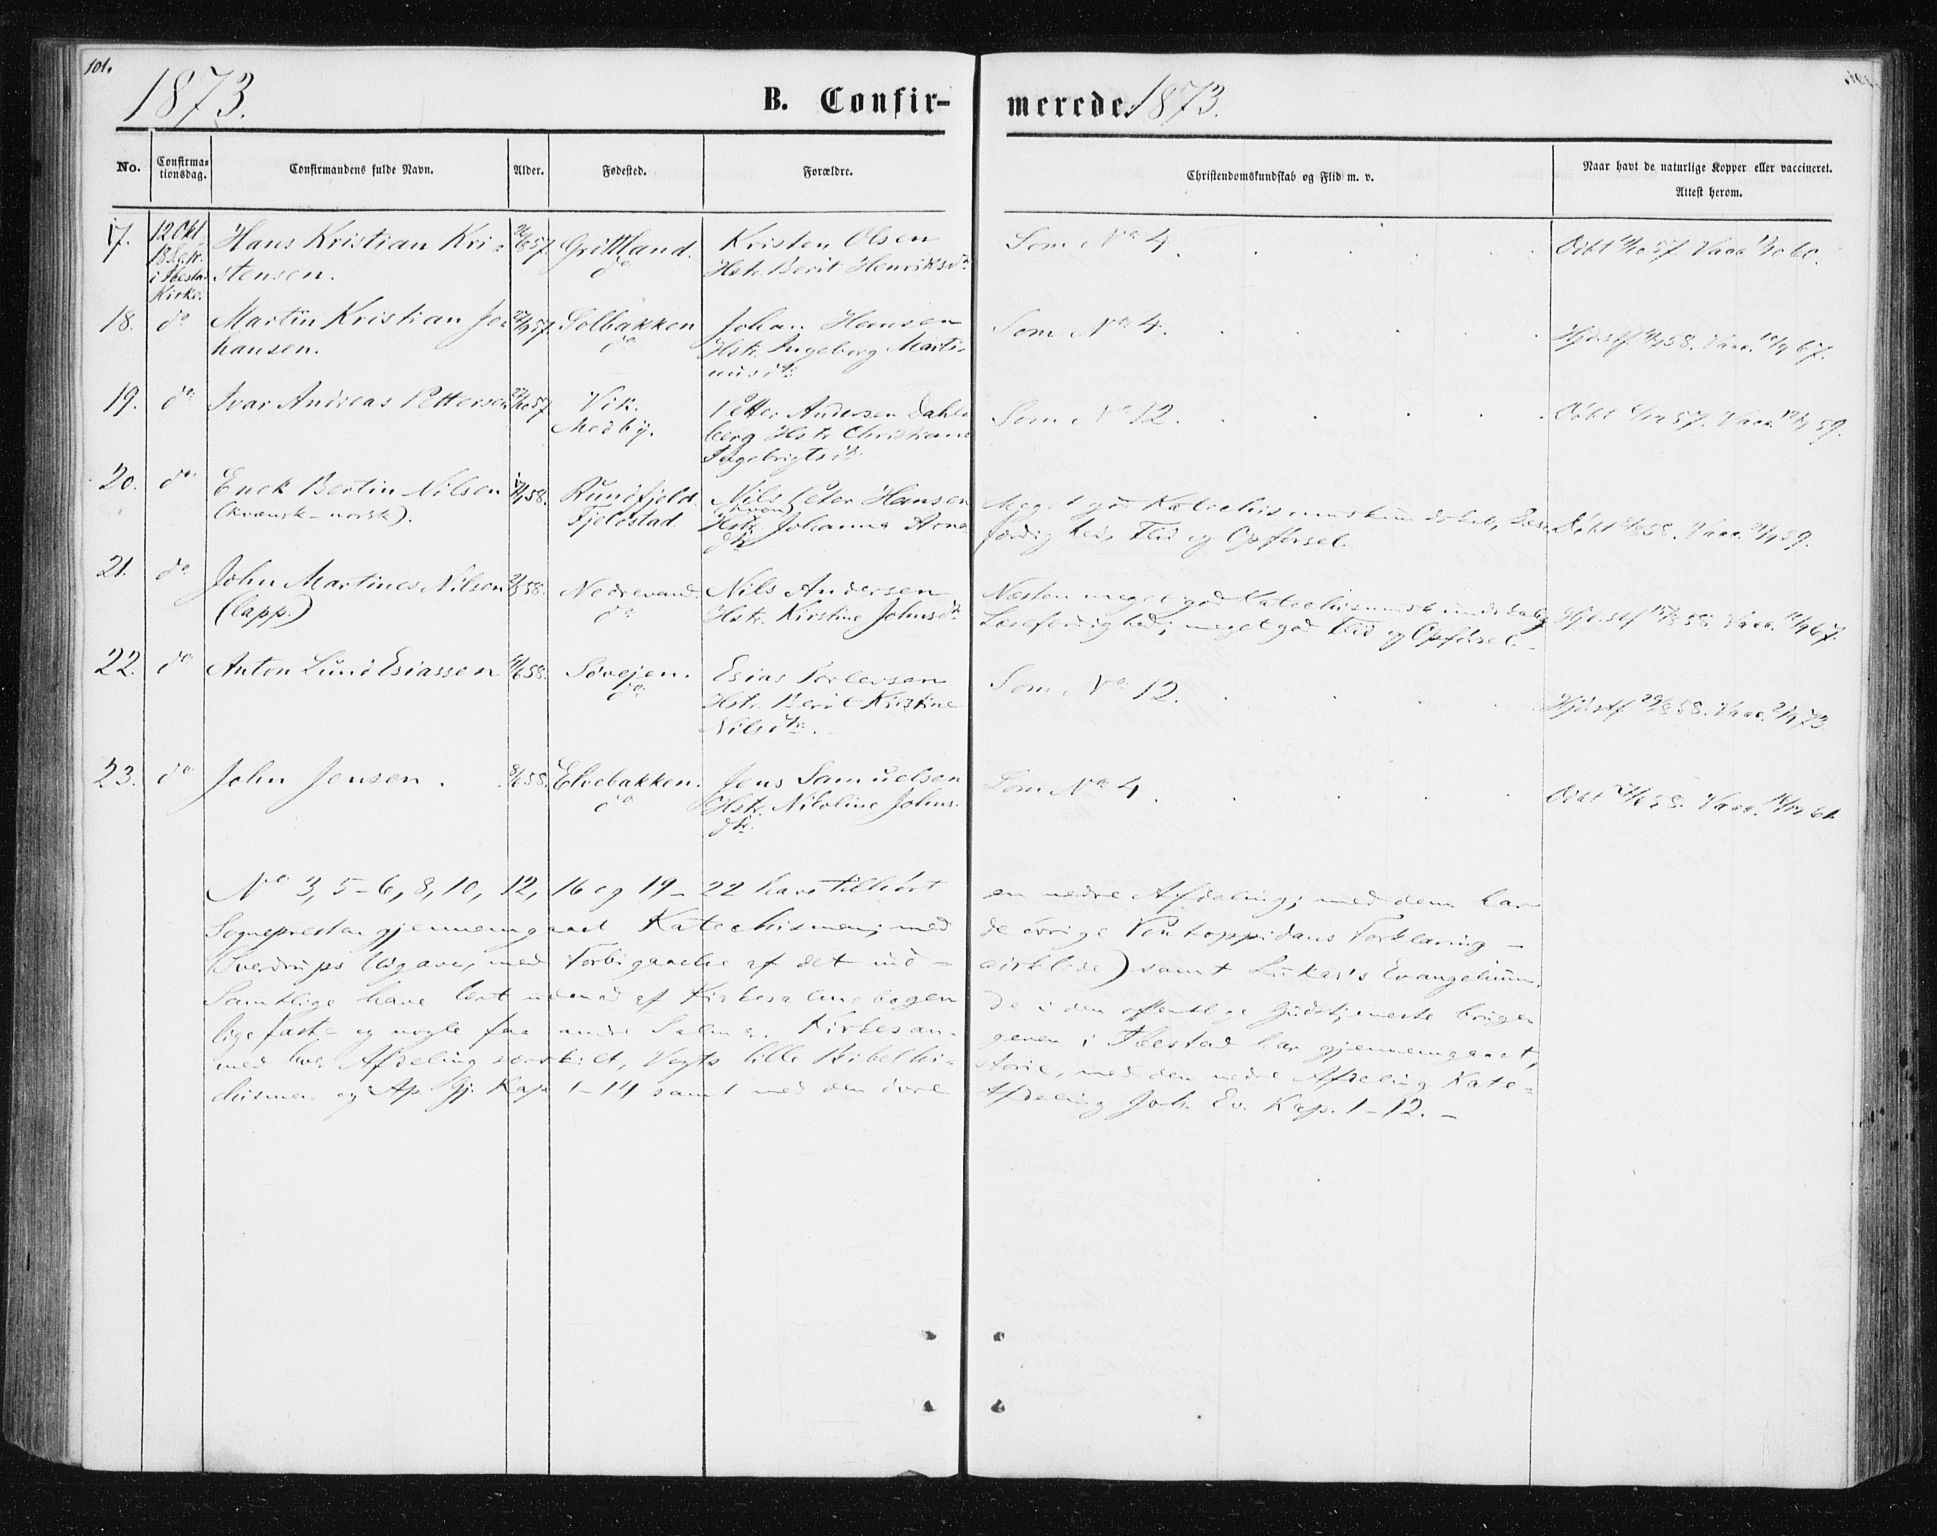 101.
1873.
B. Confir-
merede. 1873.
No.
Confirma-
tionsdag.
Confirmandens fulde Navn.
Alder.
Fødested.
Forældre.
Christendomskundskab og Flid m. v.
Naar havt de naturlige Kopper eller vaccineret.
Attest herom.
17.
12 Okt.
18 S. p.
i Ibestad
Kirke.
Hans Kristian Kri-
stensen.
57.
Grötland.
do
Kristen Olsen
Hstr. Berit Henriksdr
Som No 4.
Döbt 57. Vacc. 60.
18.
do
Martin Kristian Jo-
hansen.
57.
Solbakken
do
Johan Hansen
Hstr. Ingeborg Marti-
nusdtr
Som No 4.
Hjd. stf 58. Vacc. 67.
19.
do
Ivar Andreas Pettersen
57
Vik.
Medby.
Petter Andersen Dahl-
berg Hstr Christiane
Ingebrigtsdr
Som No 12.
Döbt 57. Vacc. 59.
20.
do
Erick Bertin Nilsen
(kvænsk-norsk).
58.
Rundfjeld
Fjeldstad
Nils Peter Hansen
(kvæn)
Hstr. Johanna Arne-
dtr
Meget god Katechismuskundskab, Læse-
færdighed, Flid og Opførsel.
Döbt 58. Vacc. 59.
21.
do
John Martines Nilsen
(lapp.)
58.
Nedrevand.
do
Nils Andersen
Hstr. Kirstine Johnsdtr
Næsten meget god Katechismuskundskab,
Læsefærdighed; meget god Flid og Opførsel.-
Hjd. stf 58. Vacc. 67.
22.
do
Anton Lund Esiassen
58.
Søvejen.
do
Esias Torlersen
Hstr. Berit Kristine
Nilsdtr.
Som No 12.
Hjd. stf 58. Vacc. 73.
23.
do
John Jensen.
58.
Elvebakken.
do
Jens Samuelsen
Hstr. Nikoline Johns-
dtr.
Som No 4.
Döbt 58. Vacc. 61.
No 3, 5-6, 8, 10, 12, 16 og 19-22 have tilhørt
en nedre Afdeling; med dem har
Sognepresten gjennemgaaet Katechismen; med
de övrige Pontoppidans Forklaring -
(Sverdrups Udgave, med Forbigaaelse af det ind-
cirklede) samt Lukas's Evangelium.
Samtlige have lært udenad af Kirkesalmebogen
De i den offentlige Gudstjeneste brugen
lige fast- og nogle faa andre Salmer. Kirkesan-
geren i Ibestad har gjennemgaaet,
med hver Afdeling særskilt, Vogts lille Bibelhi-
storie, med den nedre Afdeling Kate-
chismen og Ap. Gj. Kap. 1-14 samt med den övre
Afdeling Joh. Ev. Kap. 1-12. -